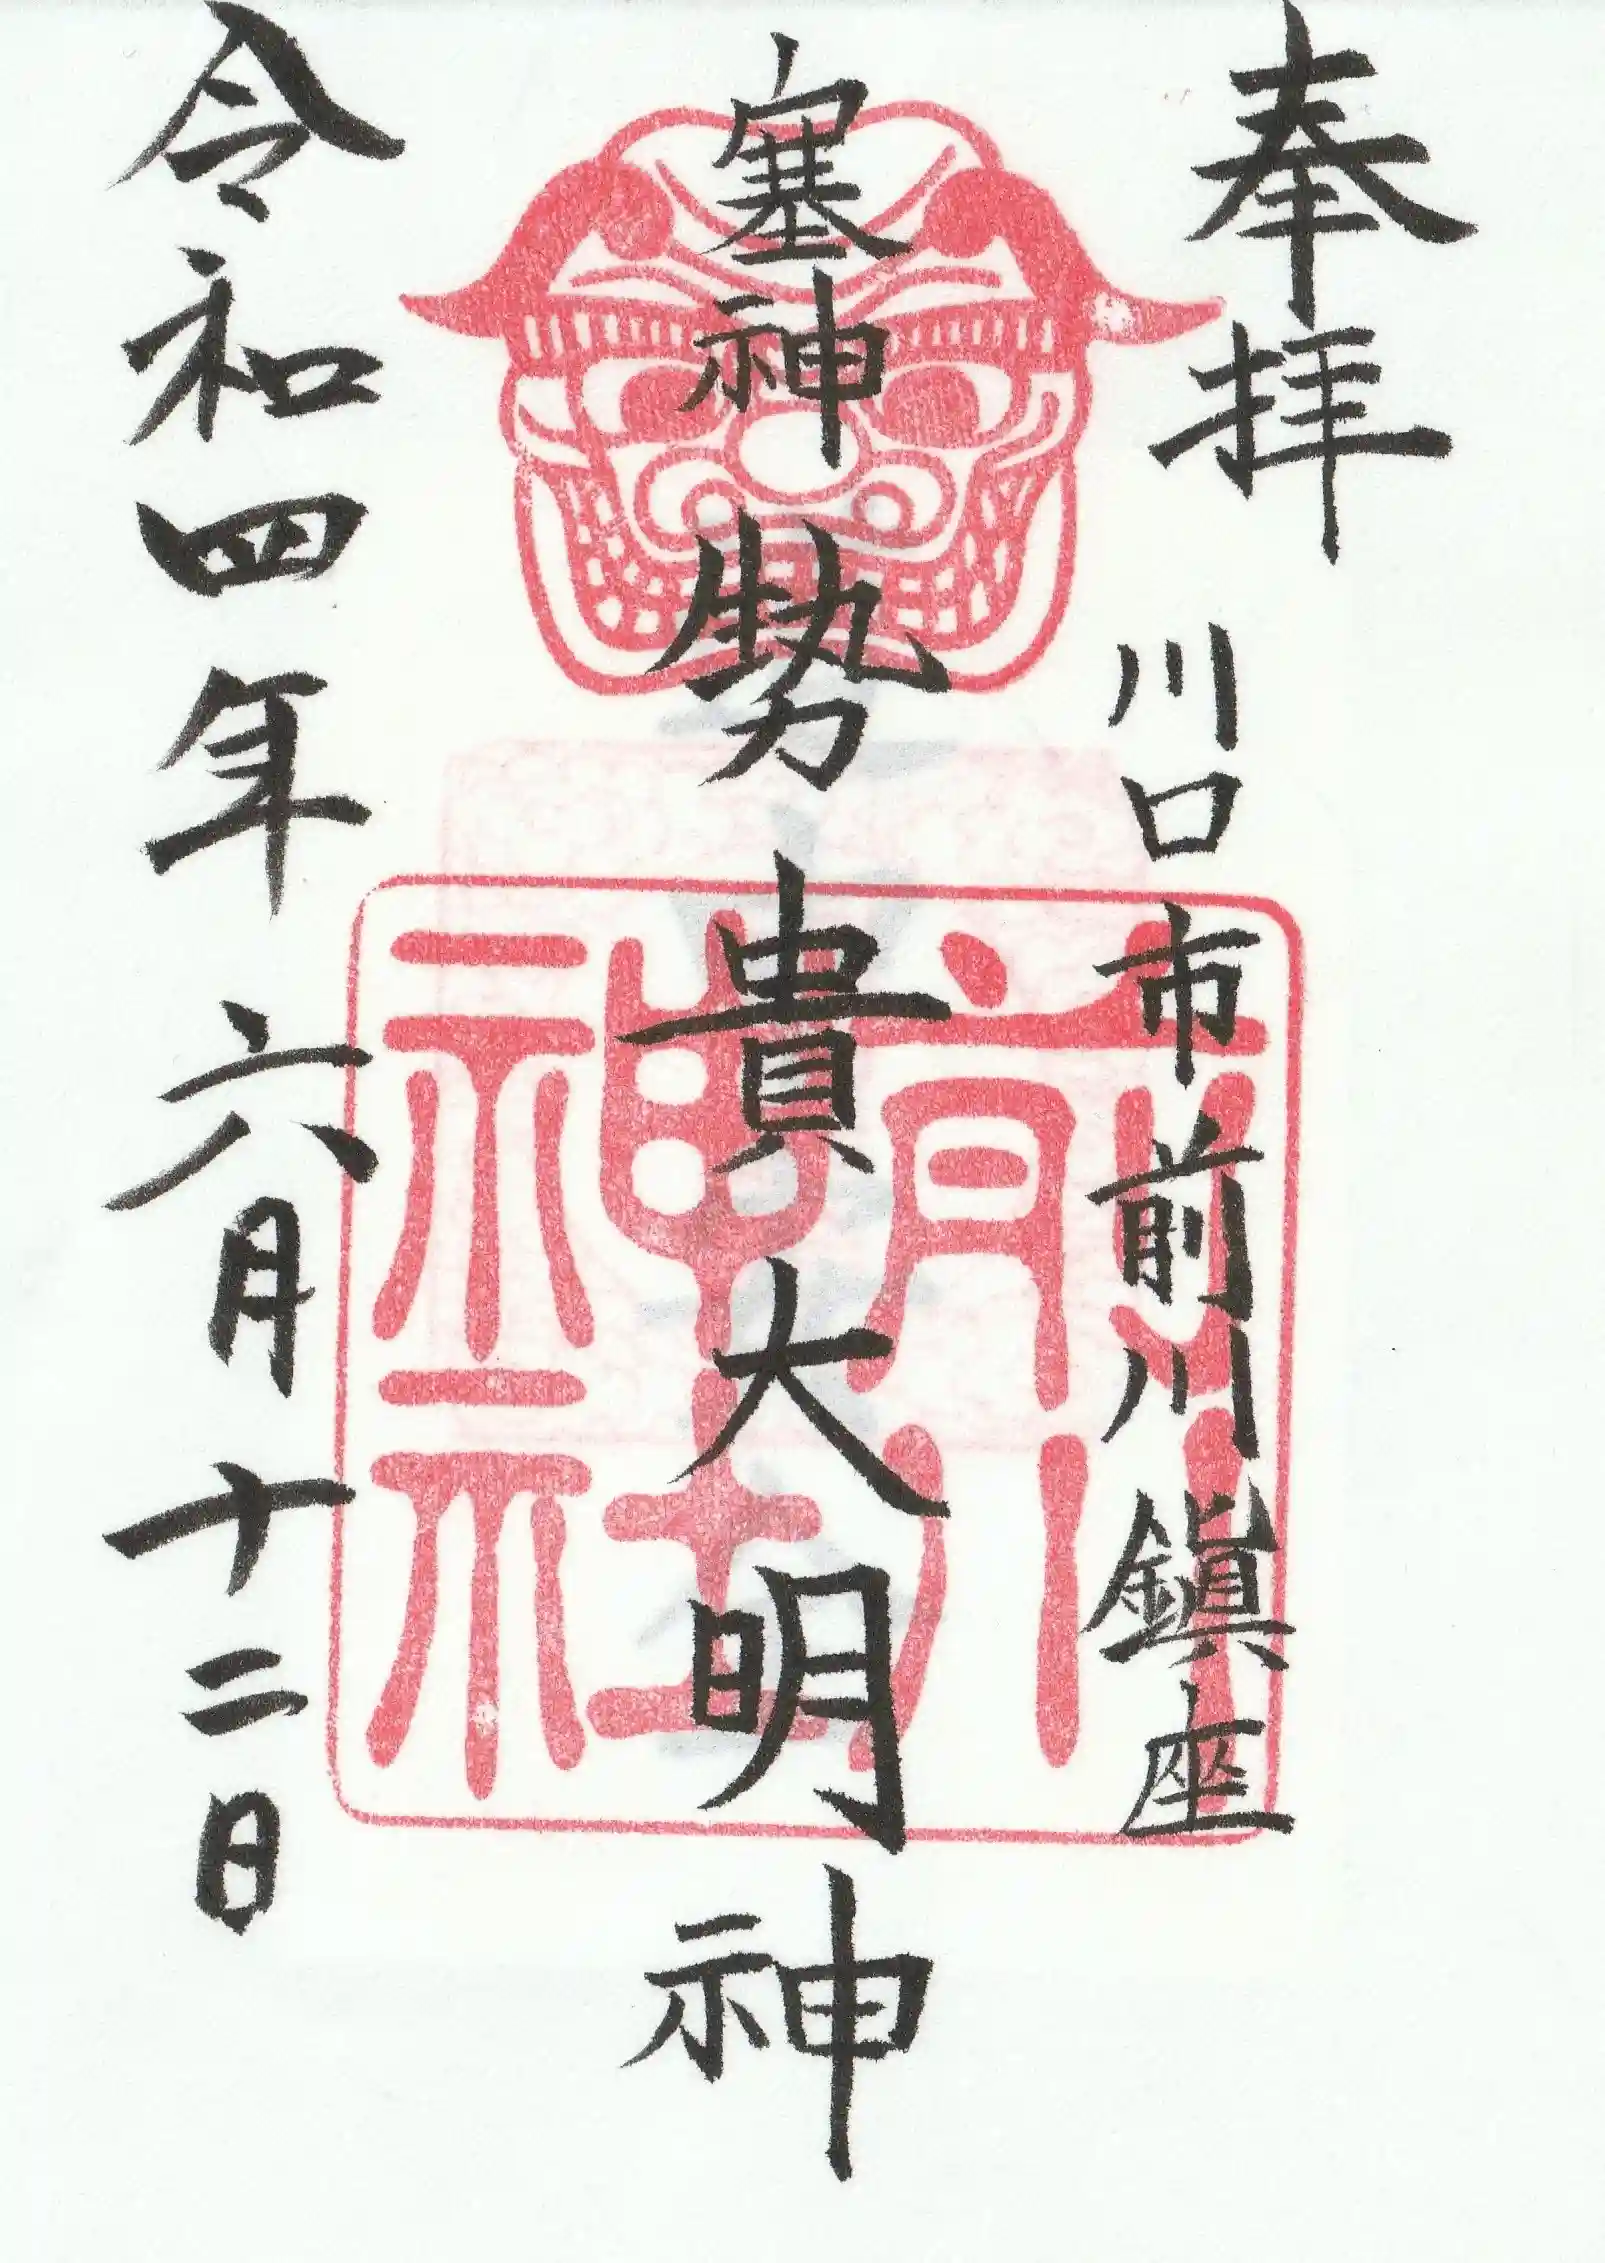 奉拝
川口市前川鎮座
塞神 勢貴大明神
令和四年六月十二日
前川
神社